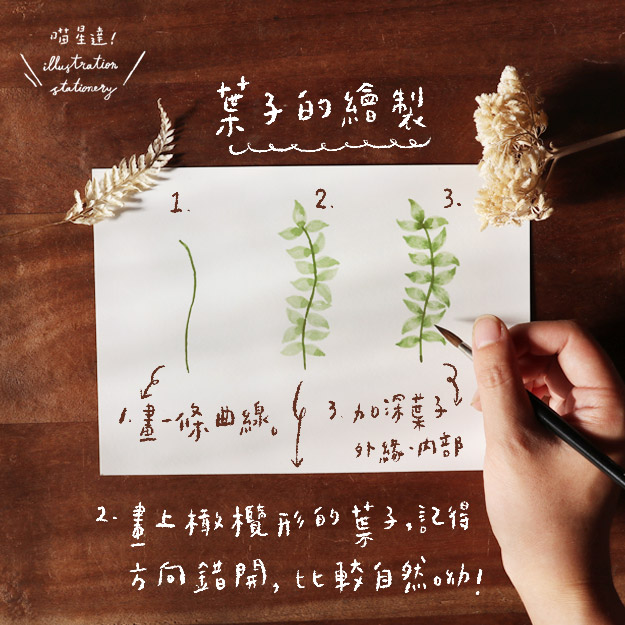 喵星達!
illustration
stationery
葉子的繪製
1.
2.
3.
1. 畫一條曲線。
3. 加深葉子
外緣、內部
2. 畫上橄欖形的葉子,記得
方向錯開,比較自然呦!